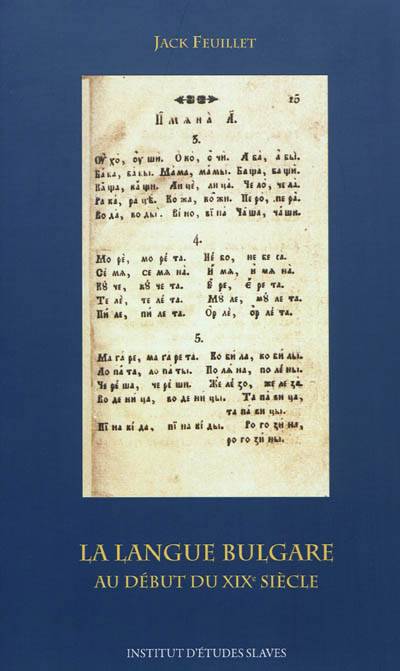 JACK FEUILLET
15
Имѧна̀ А҃.
3.
Оу̀хо, оу̀ши. О́ко, о́чи. А́ва, а́вы.
Ба́ва, ва́вы. Ма́ма, ма́мы. Ба́ща, ба́щи.
Ка́ща, ка́щи. Ли́це, ли́ца. Че́ло, че́ла.
Ра́ка, ра́цѣ. Ко́жа, ко́жи. Перо̀, пе́ра.
Во́да, во́ды. Ви́но, ві́на. Ча́ша, ча́ши.
4.
Мо рѐ, мо ре́ та. Не́ бо, не бе са.
Се́ мѧ, се мѧ на̀. И́ мѧ, и мѧ на̀.
Кꙋ́ че, кꙋ́ че та. Е҆́ ре, Е҆́ ре та.
Те лѐ, те ле́ та. Мꙋ́ ле, мꙋ́ ле та.
Пи́ ле, пи́ ле та. Ор лѐ, Ор ле́ та.
5.
Ма га́ ре, ма га́ ре та. Ко би́ ла, ко би́ лы.
Ло па́ та, ло па́ ты. По лѧ́ на, по лѐ ны.
Че ре́ ша, че ре́ ши. Же лѐ зо, же лѐ за.
Во де ни́ ца, во де ни́ цы. Та па́ ви ца,
та па́ ви цы.
Пі на ві́ да, пі на ві́ ды. Ро го́ зи на,
ро го́ зи ны.
LA LANGUE BULGARE
AU DÉBUT DU XIXe SIÈCLE
INSTITUT D'ÉTUDES SLAVES